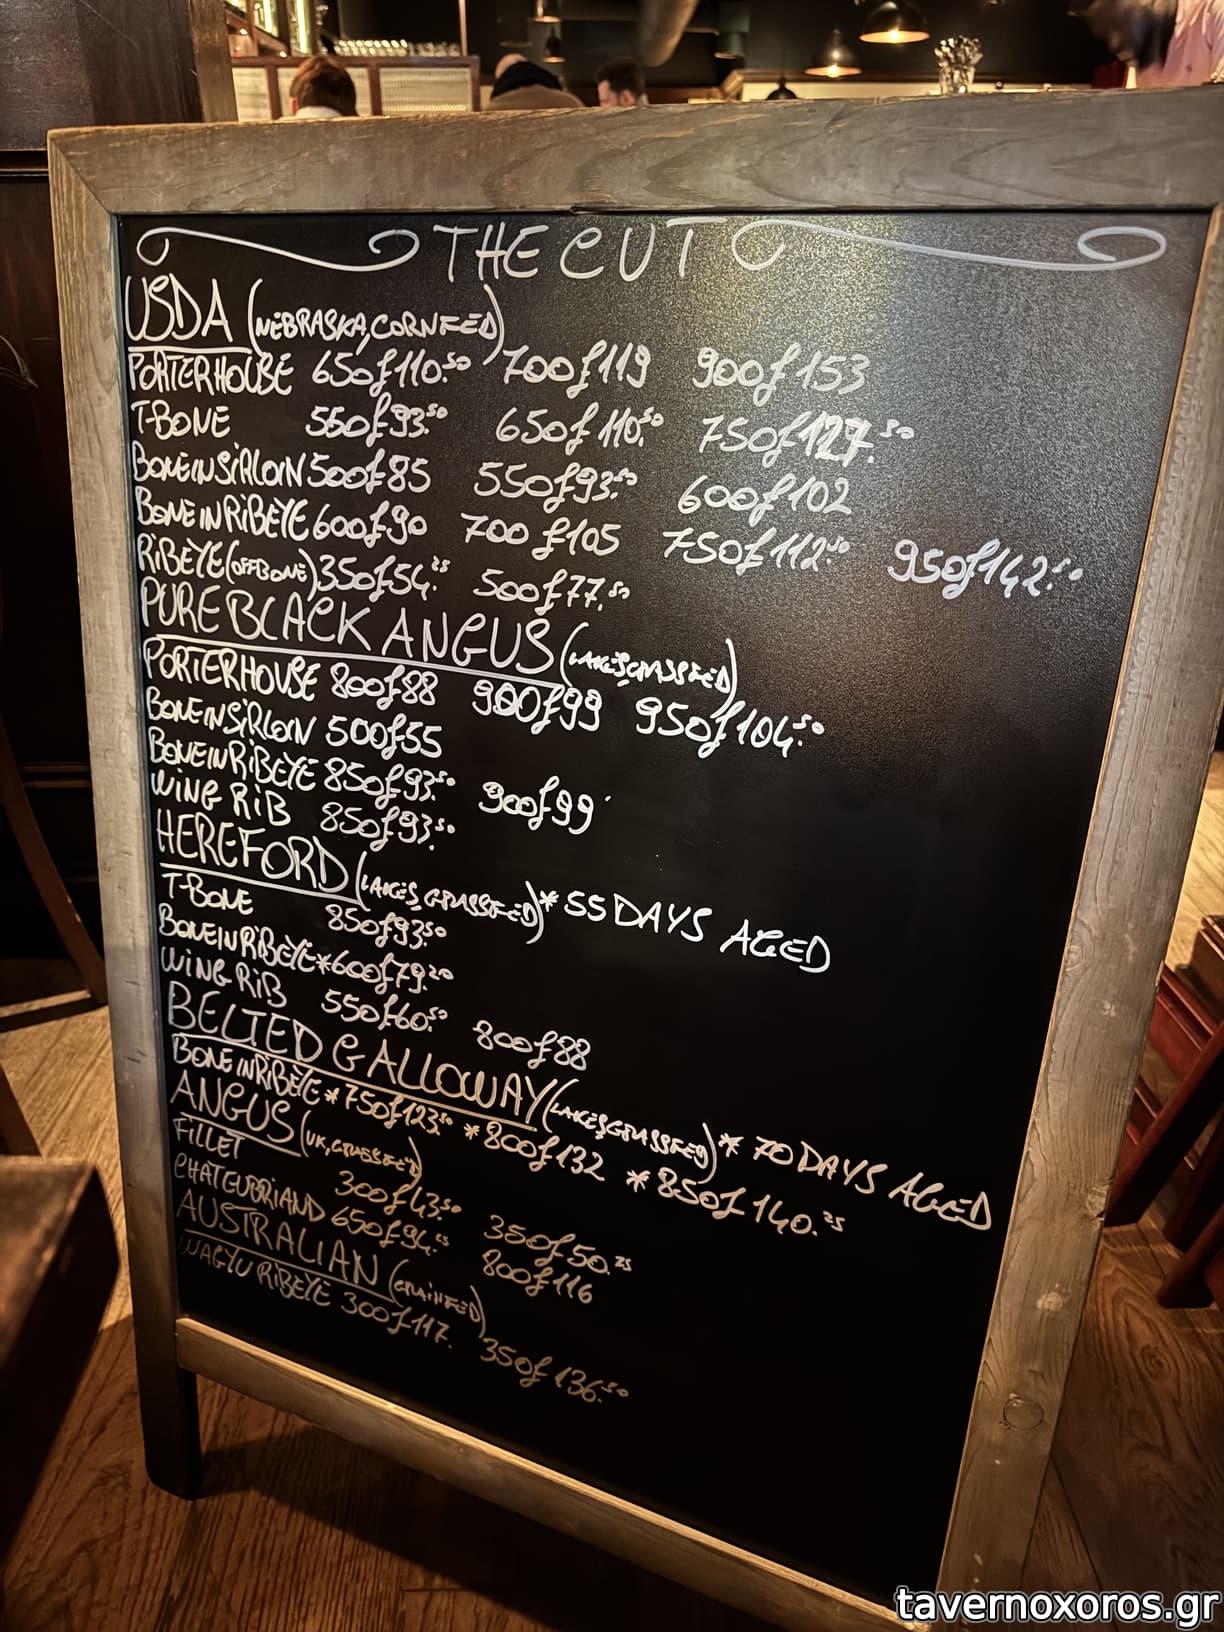 THE CUT
USDA (NEBRASKA, CORNFED)
PORTERHOUSE 650f110.50 700f119 900f153
T-BONE 550f93.50 650f110.50 750f127.50
BONEINSIRLOIN 500f85 550f93.50 600f102
BONE IN RIBEYE 600f90 700f105 750f112.50 950f142.50
RIBEYE (OFFBONE) 350f54.25 500f77.50
PURE BLACK ANGUS (LAKES, GRASSFED)
PORTERHOUSE 800f88 900f99 950f104.50
BONEINSIRLOIN 500f55
BONEINRIBEYE 850f93.50 900f99
WING RIB 850f93.50
HEREFORD (LAKES, GRASSFED) * 55 DAYS AGED
T-BONE 850f93.50
BONEINRIBEYE * 600f79.20
WING RIB 550f60.50 800f88
BELTED GALLOWAY (LAKES, GRASSFED) * 70 DAYS AGED
BONE IN RIBEYE * 750f123.50 * 800f132 * 850f140.25
ANGUS (UK, GRASSFED)
FILLET 300f43.50 350f50.25
CHATEUBRIAND 650f94.25 800f116
AUSTRALIAN (GRAINFED)
WAGYU RIBEYE 300f117. 350f136.50
tavernoxoros.gr